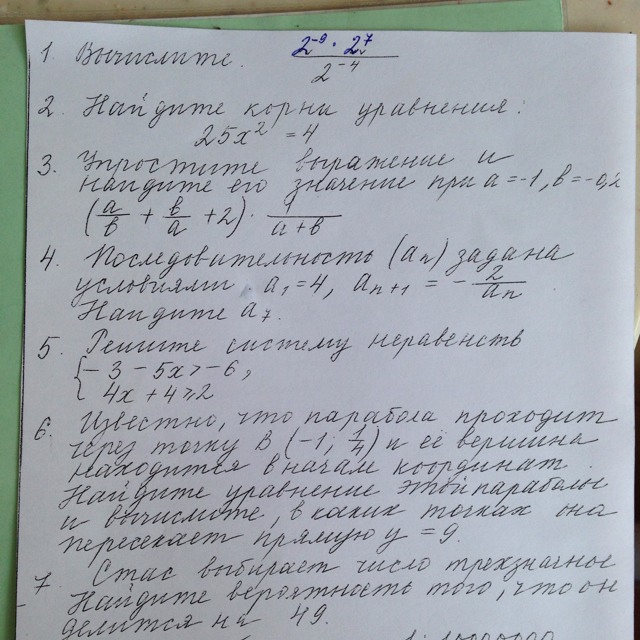 1. Вычислите. 2⁻⁹ · 2⁷ / 2⁻⁴
2. Найдите корни уравнения:
25x² = 4
3. Упростите выражение и
найдите его значение при a = -1, b = -0,2
(a/b + b/a + 2) · 1/(a+b)
4. Последовательность (aₙ) задана
условиями a₁ = 4, aₙ₊₁ = - 2/aₙ
Найдите a₇.
5. Решите систему неравенств
{ - 3 - 5x > -6,
4x + 4 ≥ 2
6. Известно, что парабола проходит
через точку B (-1; 1/4) и её вершина
находится в начале координат.
Найдите уравнение этой параболы
и вычислите, в каких точках она
пересекает прямую y = 9.
7. Стас выбирает число трехзначное
Найдите вероятность того, что он
делится на 49.